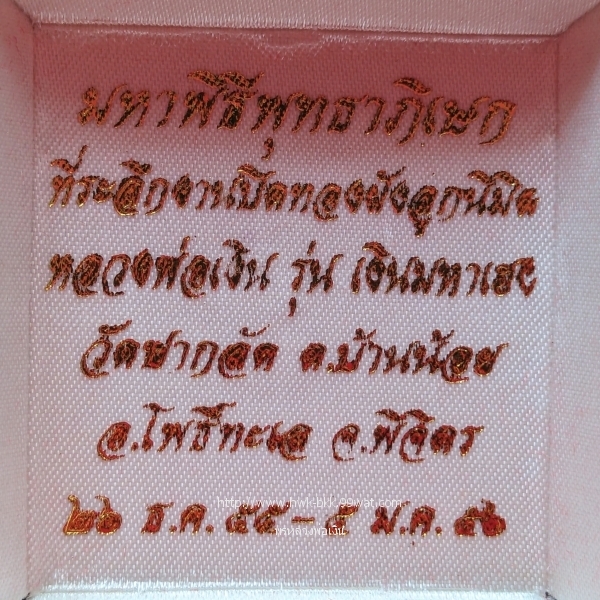 มหาพิธีพุทธาภิเษก
ที่ระลึกงานเปิดทองฝังลูกนิมิต
หลวงพ่อเงิน รุ่น เงินมหาเฮง
วัดซากลัด ต.บ้านน้อย
อ.โพธิ์ทะเล จ.พิจิตร
http://www.hwk-bkk.99wat.com
๒๖ ธ.ค. ๕๕ - ๕ ม.ค. ๕๖